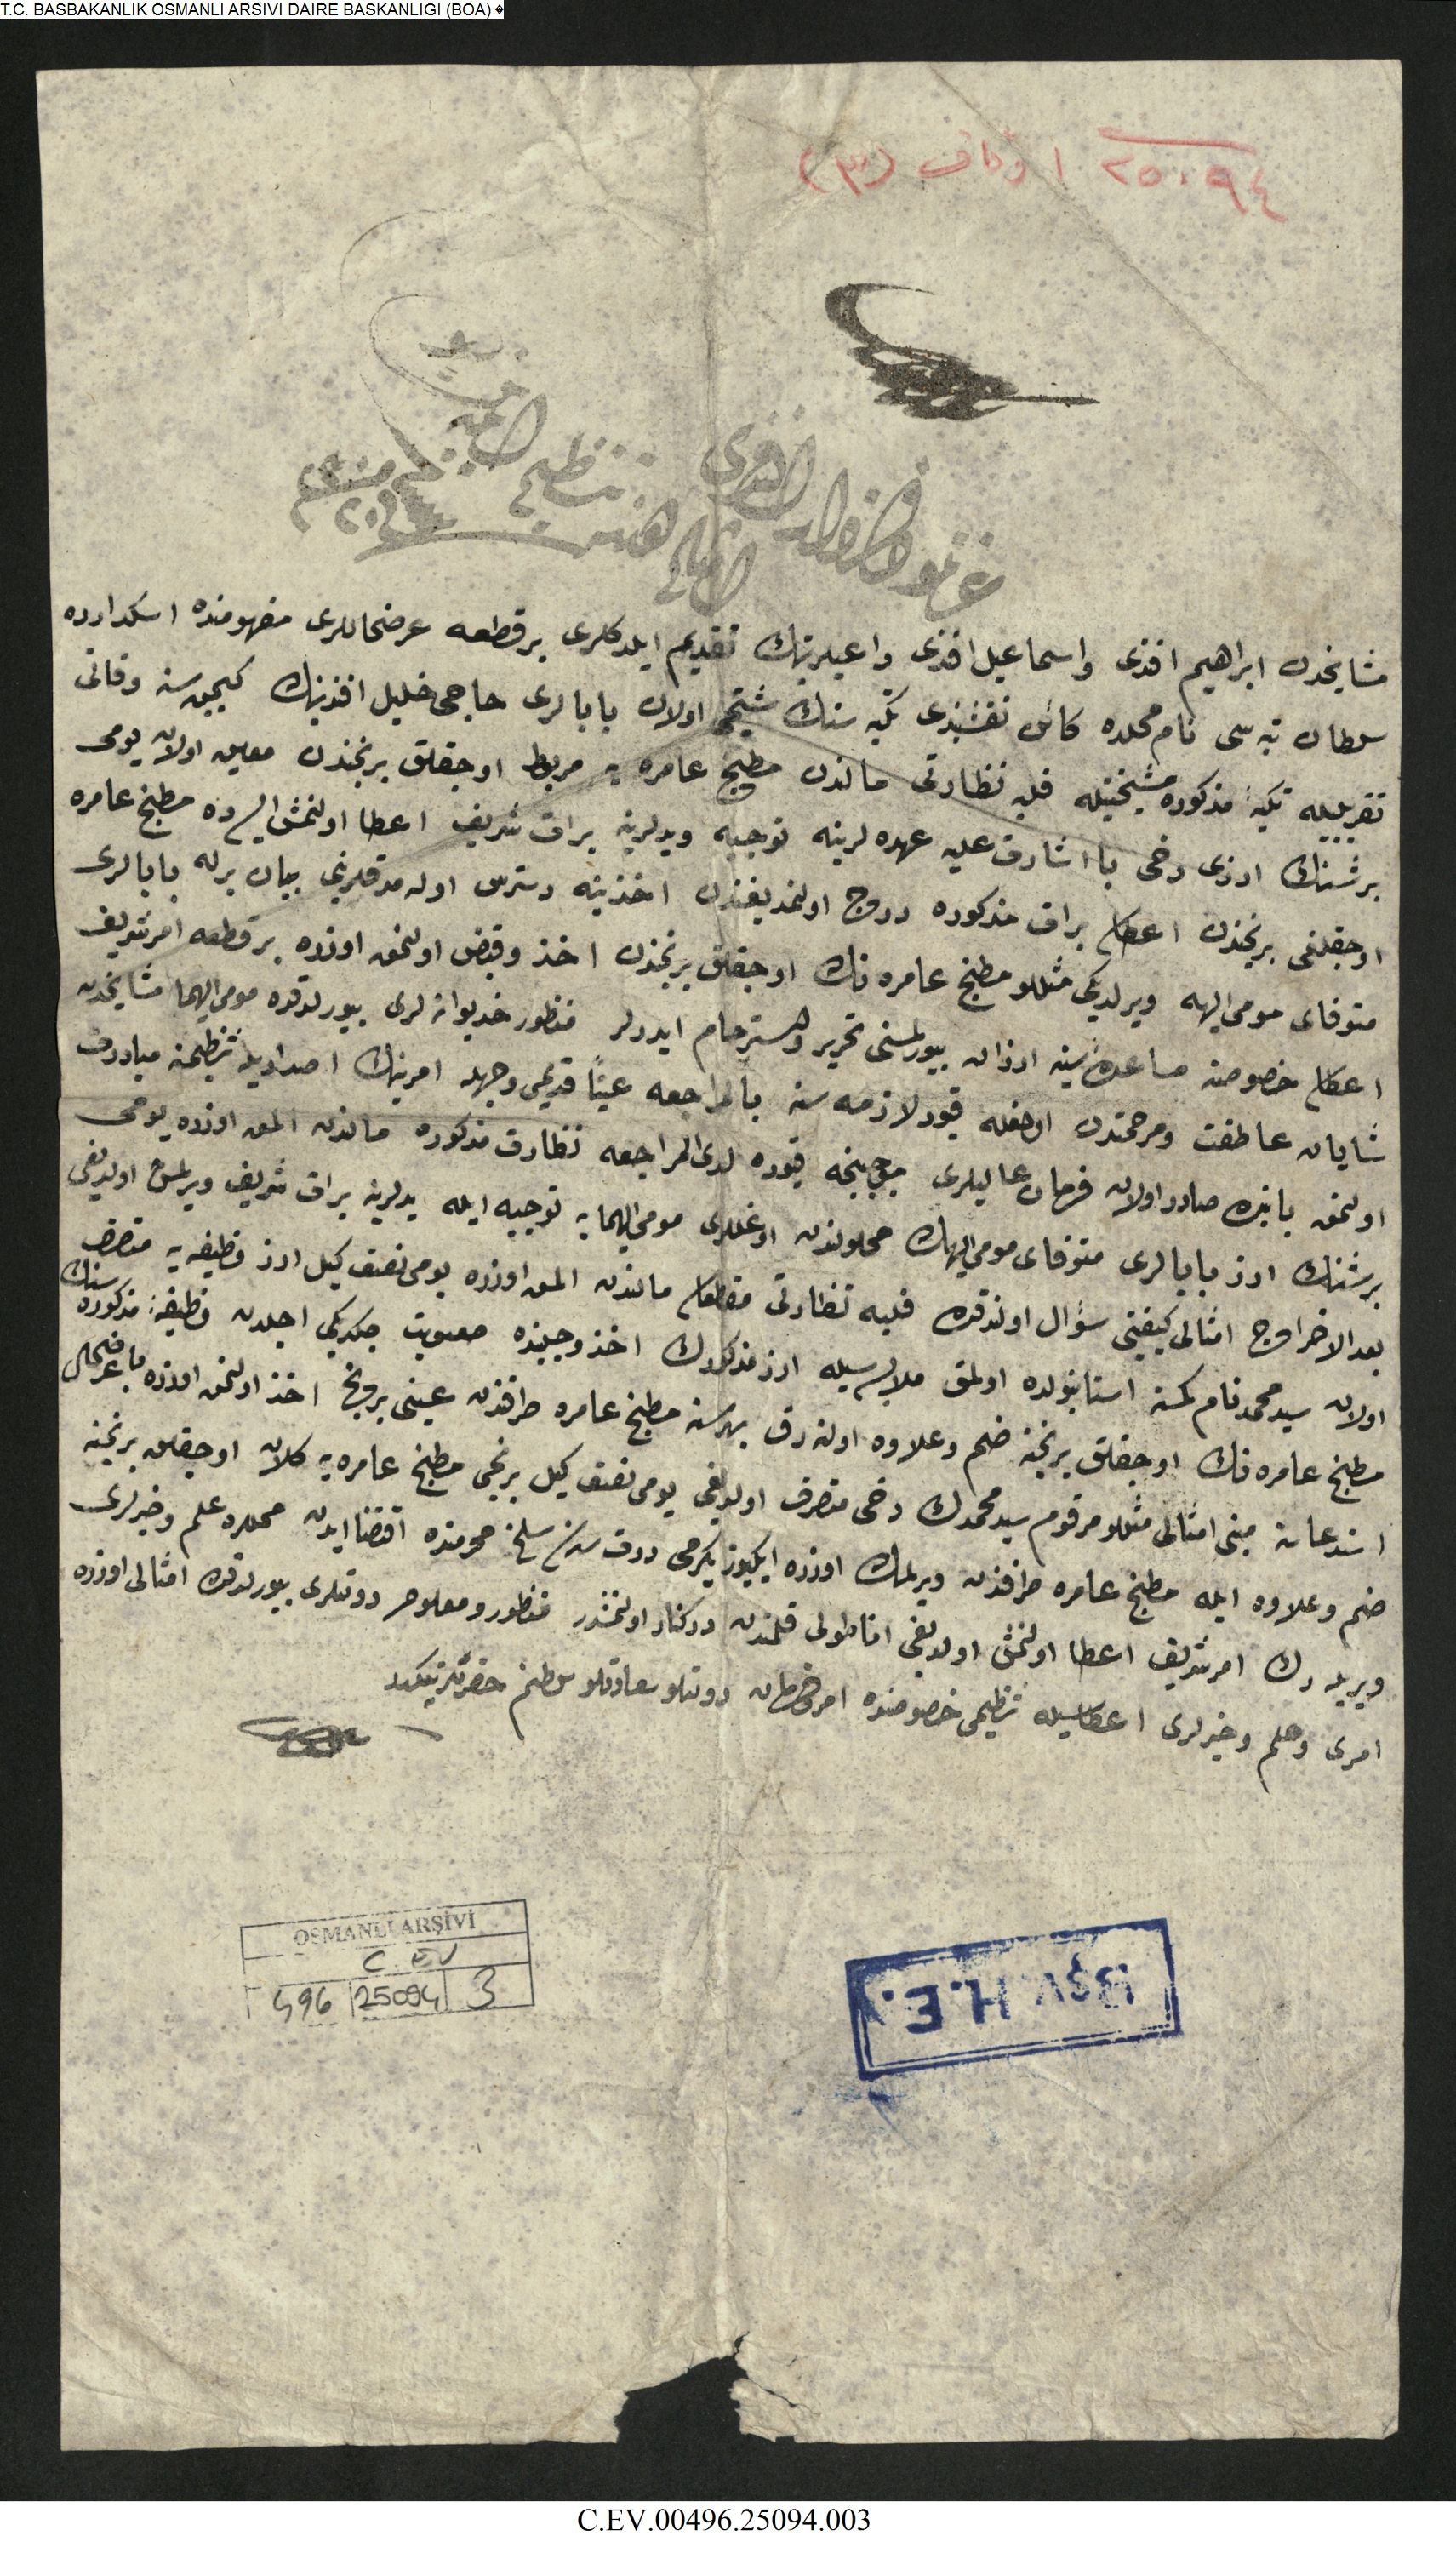 T.C. BASBAKANLIK OSMANLI ARSIVI DAIRE BASKANLIGI (BOA) �
٢٥٠٩٤ اوقاف (٣)
عزتلو دفتردار افندی
مشایخدن ابراهیم افندی واسماعیل افندی داعیلرینك تقدیم ایلدكلری بر قطعه عرضحاللری مفهومنده اسكدارده
سلطان تپه سی نام محلده كائن نقشبندی تكیه سنك شیخی اولان بابالری حاجی خلیل افندینك كچن سنه وفاتی
تقریبیله تكیهٔ مذكوره مشیختیله قلیه نظارتی مالندن مطبخ عامره یه مربوط اوجقلق برنجندن معین اولان یومی
برشنك ارزی دخی با اشارت علیه عهده لرینه توجیه ویدلرینه برات شریف اعطا اولنمش ایسه ده مطبخ عامره
اوجقلغی برنجندن اعطا برات مذكوره درج اولنمدیغندن اخذینه دسترس اوله مدقلرینی بیان برله بابالری
متوفای مومی الیهه ویرلدیكی مثللو مطبخ عامره نك اوجقلق برنجندن اخذ وقبض اولنمق اوزره بر قطعه امر شریف
اعطا خصوصنه مساعده سنیه ارزان بیورلمسنی تحریر واسترحام ایدرلر منظور خدیوانه لری بیورلدقده مومی الیهما مشایخدن
شایان عاطفت ومرحمتدن اولمغله قیود لازمه سنه بالمراجعه عیناً قدیمی وجهله امرینك اصداریله تنظیمنه مبادرت
اولنمق بابنده صادر اولان فرمان عالیلری موجبنجه قیوده لدی المراجعه نظارت مذكوره مالندن المق اوزره یومی
برشنك ارز بابالری متوفای مومی الیهك محلولندن اوغللری مومی الیهمایه توجیه ایله یدلرینه برات شریف ویرلمش اولدیغی
بعد الاخراج امثالی كیفیتی سؤال اولندقده قلیه نظارتی مقطعا مالندن المق اوزره یومی نصف كیل ارز وظیفه یه متصرف
اولان سید محمد نام كمسنه استانبولده اولمق ملابسه سیله ارز مذكورك اخذ وجلبنده صعوبت چكدیكی اجلدن وظیفهٔ مذكوره سنك
مطبخ عامره نك اوجقلق برنجنه ضم وعلاوه اولنه رق بهر سنه مطبخ عامره طرفندن عینی برنج اخذ اولنمق اوزره با عرضحال
استدعاسنه مبنی امثالی مثللو مرقوم سید محمدك دخی متصرف اولدیغی یومی نصف كیل برنجی مطبخ عامره یه كلان اوجقلق برنجنه
ضم وعلاوه ایله مطبخ عامره طرفندن ویرلمك اوزره ایكیوز یكرمی درت سنه سی سلخ محرمنده اقتضا ایدن محللره علم وخبرلری
ویریله رك امر شریف اعطا اولنمش اولدیغی اناطولی قلمندن دركنار اولنمشدر منظور ومعلوم دولتلری بیورلدقده امثالی اوزره
امری وعلم وخبرلری اعطاسیله تنظیمی خصوصنده امر وفرمان دولتلو سعادتلو سلطانم حضرتلرینكدر
OSMANLI ARŞİVİ
C. EV
496 25094 3
C.EV.00496.25094.003